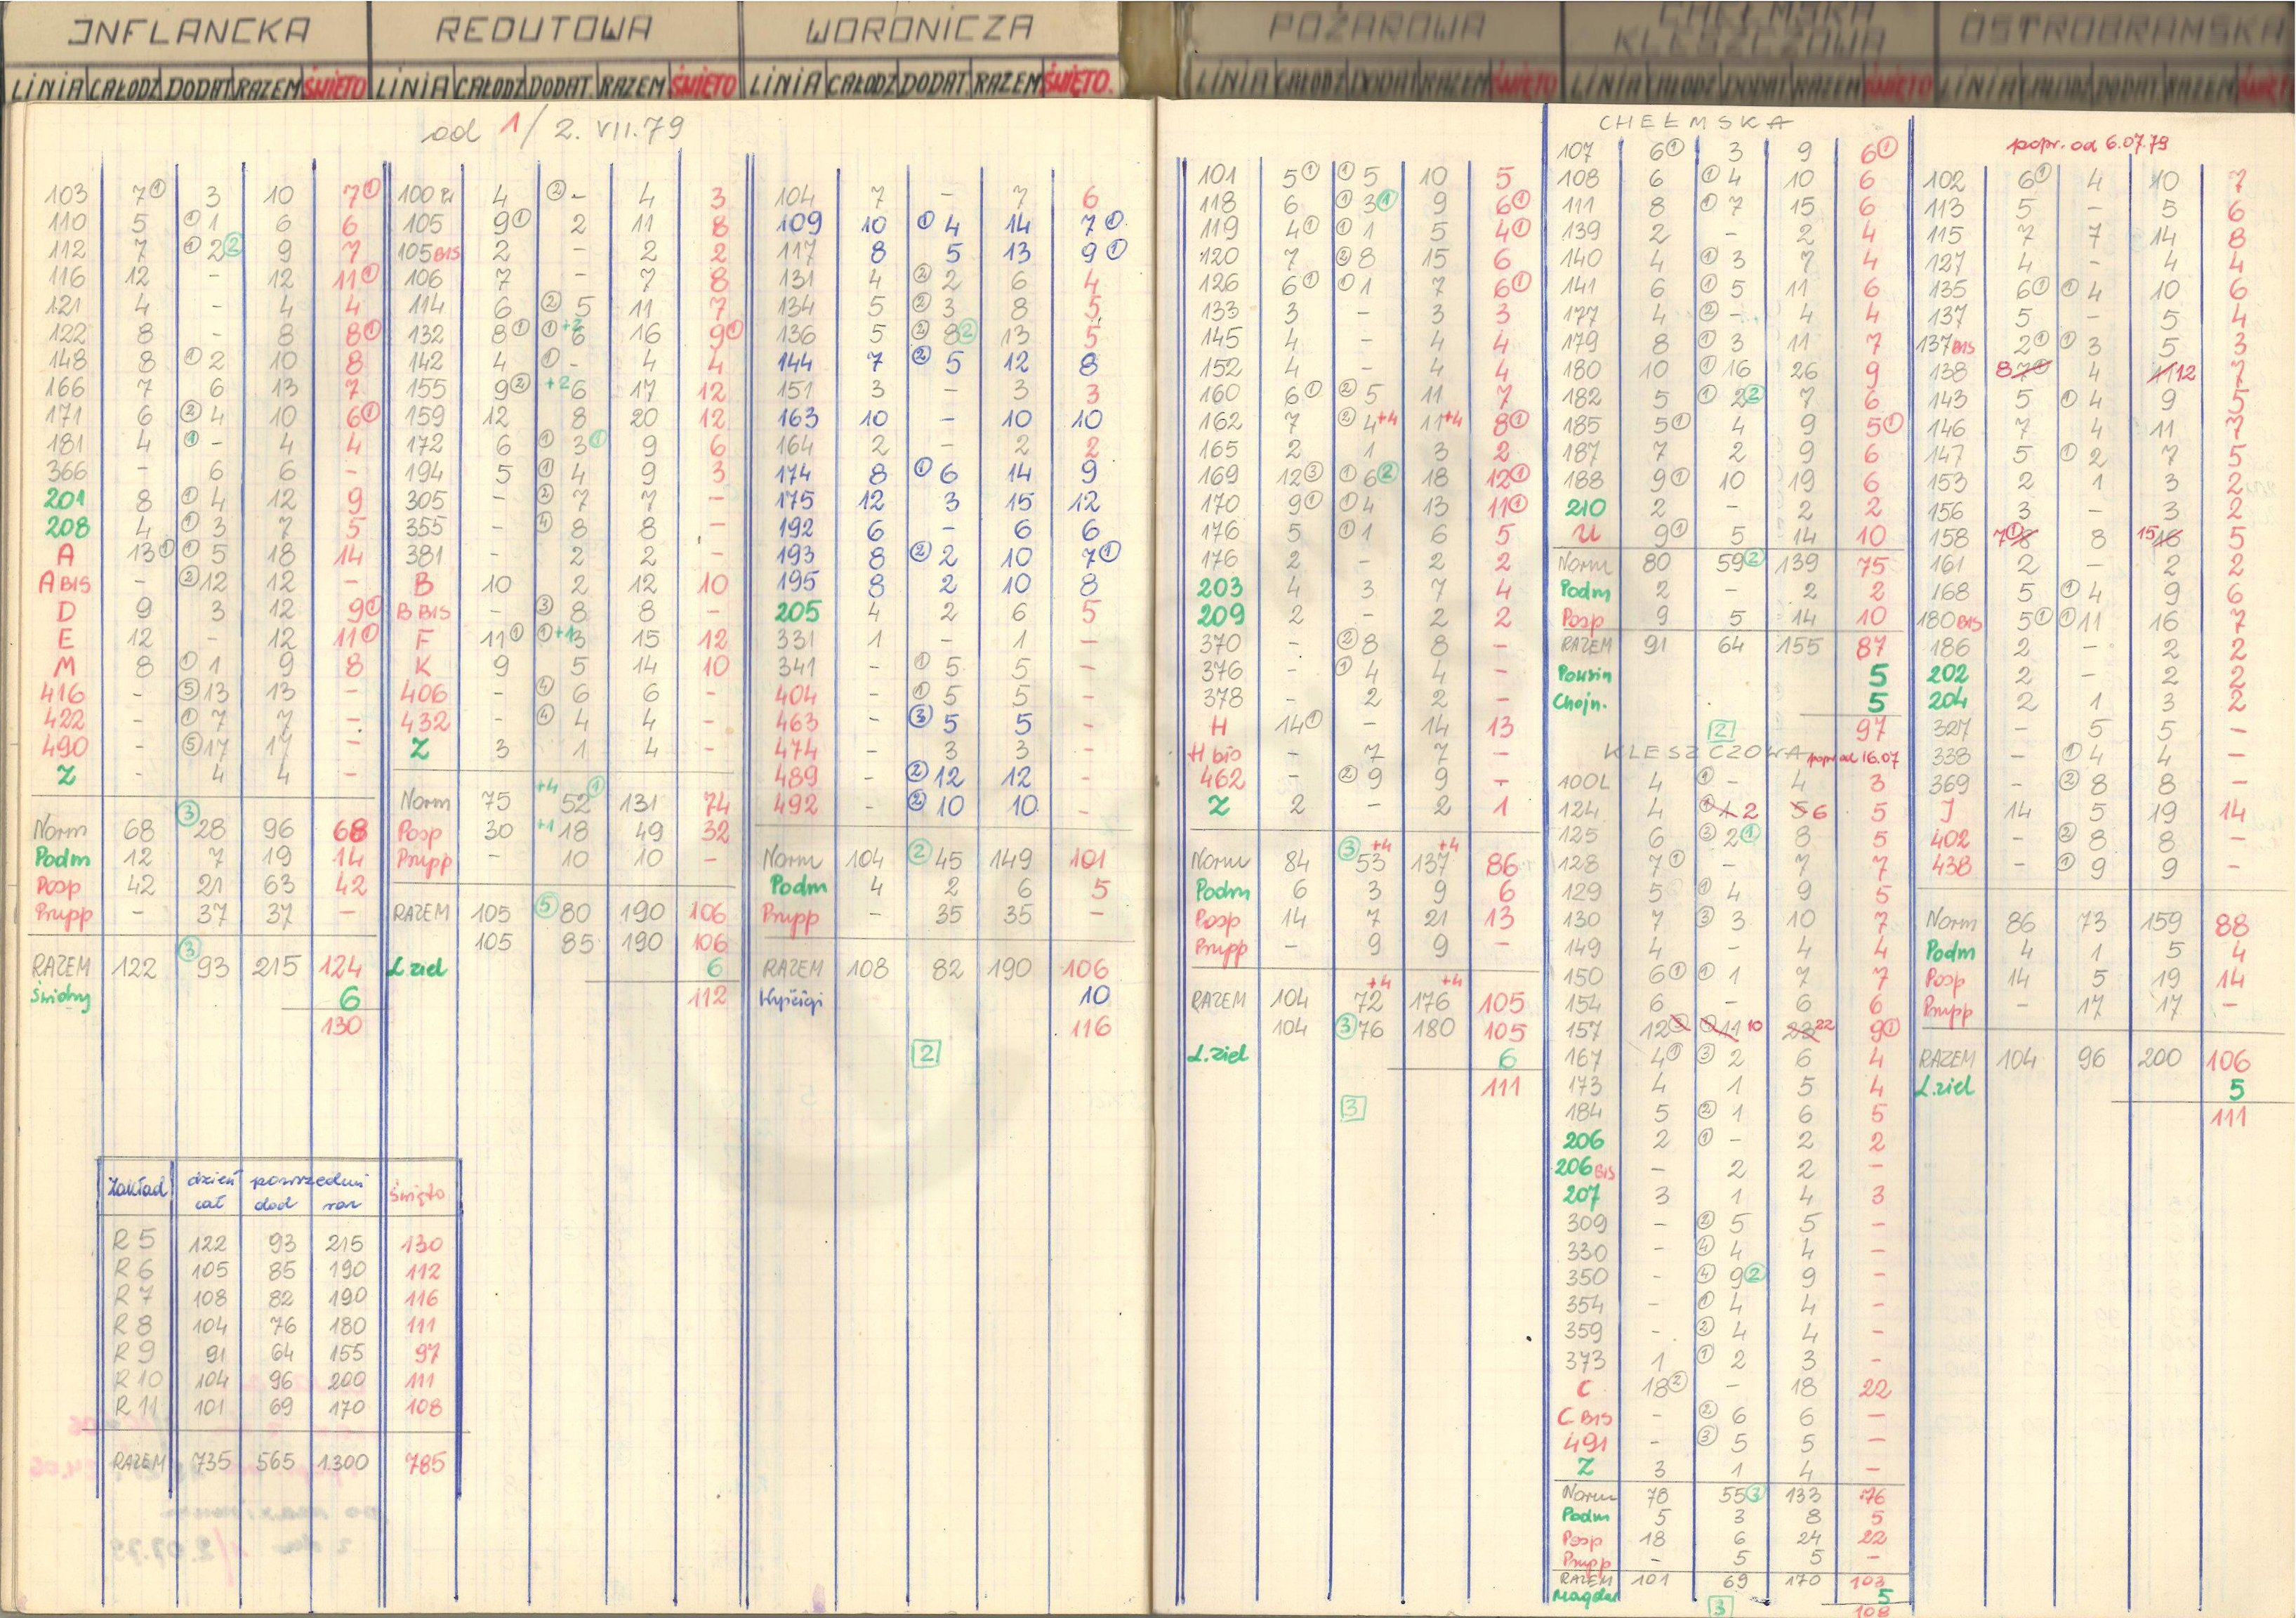 INFLANCKA
LINIA CAŁODZ DODAT RAZEM ŚWIĘTO
od 1/2. VII.79
103 7① 3 10 7①
110 5 ①1 6 6
112 7 ①2② 9 7
116 12 - 12 11①
121 4 - 4 4
122 8 - 8 8①
148 8 ①2 10 8
166 7 6 13 7
171 6 ②4 10 6①
181 4 ①- 4 4
366 - 6 6 -
201 8 ①4 12 9
208 4 ①3 7 5
A 13① ①5 18 14
A BIS - ②12 12 -
D 9 3 12 9①
E 12 - 12 11①
M 8 ①1 9 8
416 - ⑤13 13 -
422 - ①7 7 -
490 - ⑤17 17 -
Z - 4 4 -
Norm 68 ③28 96 68
Podm 12 7 19 14
Posp 42 21 63 42
Prupp - 37 37 -
RAZEM 122 ③93 215 124
6
130
Zakład dzień powszedni święto
cał dod raz
R 5 122 93 215 130
R 6 105 85 190 112
R 7 108 82 190 116
R 8 104 76 180 111
R 9 91 64 155 97
R 10 104 96 200 111
R 11 101 69 170 108
RAZEM 735 565 1300 785
REDUTOWA
LINIA CAŁODZ DODAT. RAZEM ŚWIĘTO
100 ②- 4 4 3
105 9① 2 11 8
105 BIS 2 - 2 2
106 7 - 7 8
114 6 ②5 11 7
132 8① ①+2 6 16 9①
142 4 ①- 4 4
155 9② +2 6 17 12
159 12 8 20 12
172 6 ①3① 9 6
194 5 ①4 9 3
305 - ②7 7 -
355 - ④8 8 -
381 - 2 2 -
B 10 2 12 10
B BIS - ③8 8 -
F 11① ①+1 3 15 12
K 9 5 14 10
406 - ④6 6 -
432 - ④4 4 -
Z 3 1 4 -
Norm 75 +4 52① 131 74
Posp 30 +1 18 49 32
Prupp - 10 10 -
RAZEM 105 ⑤80 190 106
105 85 190 106
L.ziel 6
112
WORONICZA
LINIA CAŁODZ DODAT. RAZEM ŚWIĘTO.
104 7 - 7 6
109 10 ①4 14 7①
117 8 5 13 9①
131 4 ②2 6 4
134 5 ②3 8 5
136 5 ②8② 13 5
144 7 ②5 12 8
151 3 - 3 3
163 10 - 10 10
164 2 - 2 2
174 8 ①6 14 9
175 12 3 15 12
192 6 - 6 6
193 8 ②2 10 7①
195 8 2 10 8
205 4 2 6 5
331 1 - 1 -
341 - ①5 5 -
404 - ①5 5 -
463 - ③5 5 -
474 - 3 3 -
489 - ②12 12 -
492 - ②10 10 -
Norm 104 ②45 149 101
Podm 4 2 6 5
Prupp - 35 35 -
RAZEM 108 82 190 106
Wyścigi 10
116
2
POŻAROWA
LINIA CAŁODZ DODAT RAZEM ŚWIĘTO
101 5① ①5 10 5
118 6 ①3① 9 6①
119 4① ①1 5 4①
120 7 ②8 15 6
126 6① ①1 7 6①
133 3 - 3 3
145 4 - 4 4
152 4 - 4 4
160 6① ②5 11 7
162 7 ②4+4 11+4 8①
165 2 1 3 2
169 12③ ①6② 18 12①
170 9① ①4 13 11①
176 5 ①1 6 5
176 2 - 2 2
203 4 3 7 4
209 2 - 2 2
370 - ②8 8 -
376 - ①4 4 -
378 - 2 2 -
H 14① - 14 13
H bis - 7 7 -
462 - ②9 9 -
Z 2 - 2 1
Norm 84 ③53+4 137+4 86
Podm 6 3 9 6
Posp 14 7 21 13
Prupp - 9 9 -
RAZEM 104 72+4 176+4 105
104 ③76 180 105
L.ziel 6
111
3
CHEŁMSKA
KLESZCZOWA
LINIA CAŁODZ DODAT RAZEM ŚWIĘTO
CHEŁMSKA
107 6① 3 9 6①
108 6 ①4 10 6
111 8 ①7 15 6
139 2 - 2 4
140 4 ①3 7 4
141 6 ①5 11 6
177 4 ②- 4 4
179 8 ①3 11 7
180 10 ①16 26 9
182 5 ①2② 7 6
185 5① 4 9 5①
187 7 2 9 6
188 9① 10 19 6
210 2 - 2 2
U 9① 5 14 10
Norm 80 59② 139 75
Podm 2 - 2 2
Posp 9 5 14 10
RAZEM 91 64 155 87
Powsin 5
Chojn. 5
97
2
KLESZCZOWA popr od 16.07
100L 4 ①- 4 3
124 4 ①1 2 5 6 5
125 6 ③2① 8 5
128 7① - 7 7
129 5 ①4 9 5
130 7 ③3 10 7
149 4 - 4 4
150 6① ①1 7 7
154 6 - 6 6
157 12② ①11 10 23 22 9①
167 4① ③2 6 4
173 4 1 5 4
184 5 ②1 6 5
206 2 ①- 2 2
206 BIS - 2 2 -
207 3 1 4 3
309 - ②5 5 -
330 - ④4 4 -
350 - ④9② 9 -
354 - ①4 4 -
359 - ②4 4 -
373 1 ①2 3 -
C 18② - 18 22
C BIS - ②6 6 -
491 - ③5 5 -
Z 3 1 4 -
Norm 78 55③ 133 76
Podm 5 3 8 5
Posp 18 6 24 22
Prupp - 5 5 -
RAZEM 101 69 170 103
Magdal 5
3 108
OSTROBRAMSKA
LINIA CAŁODZ DODAT RAZEM
popr. od 6.07.79
102 6① 4 10 7
113 5 - 5 6
115 7 7 14 8
127 4 - 4 4
135 6① ①4 10 6
137 5 - 5 4
137 BIS 2① ①3 5 3
138 8 7① 4 11 12 7
143 5 ①4 9 5
146 7 4 11 7
147 5 ①2 7 5
153 2 1 3 2
156 3 - 3 2
158 7① 8 8 15 16 5
161 2 - 2 2
168 5 ①4 9 6
180 BIS 5① ①11 16 7
186 2 - 2 2
202 2 - 2 2
204 2 1 3 2
327 - 5 5 -
338 - ①4 4 -
369 - ②8 8 -
J 14 5 19 14
402 - ②8 8 -
438 - ①9 9 -
Norm 86 73 159 88
Podm 4 1 5 4
Posp 14 5 19 14
Prupp - 17 17 -
RAZEM 104 96 200 106
L.ziel 5
111